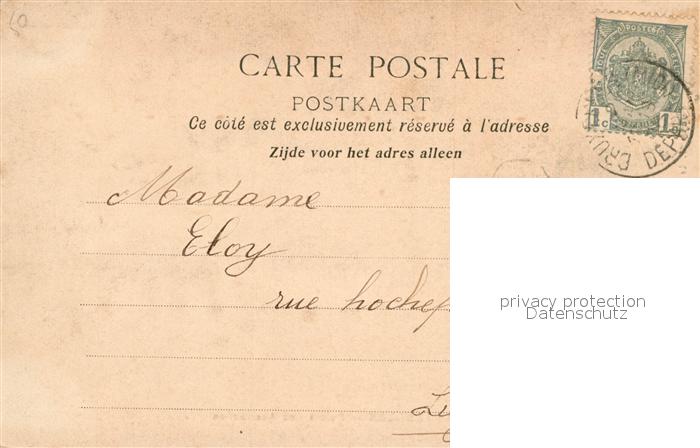 10
CARTE POSTALE
POSTKAART
Ce côté est exclusivement réservé à l'adresse
Zijde voor het adres alleen
POSTES
1c 1c
DEPART
Madame
Eloy
rue hochep
privacy protection
Datenschutz